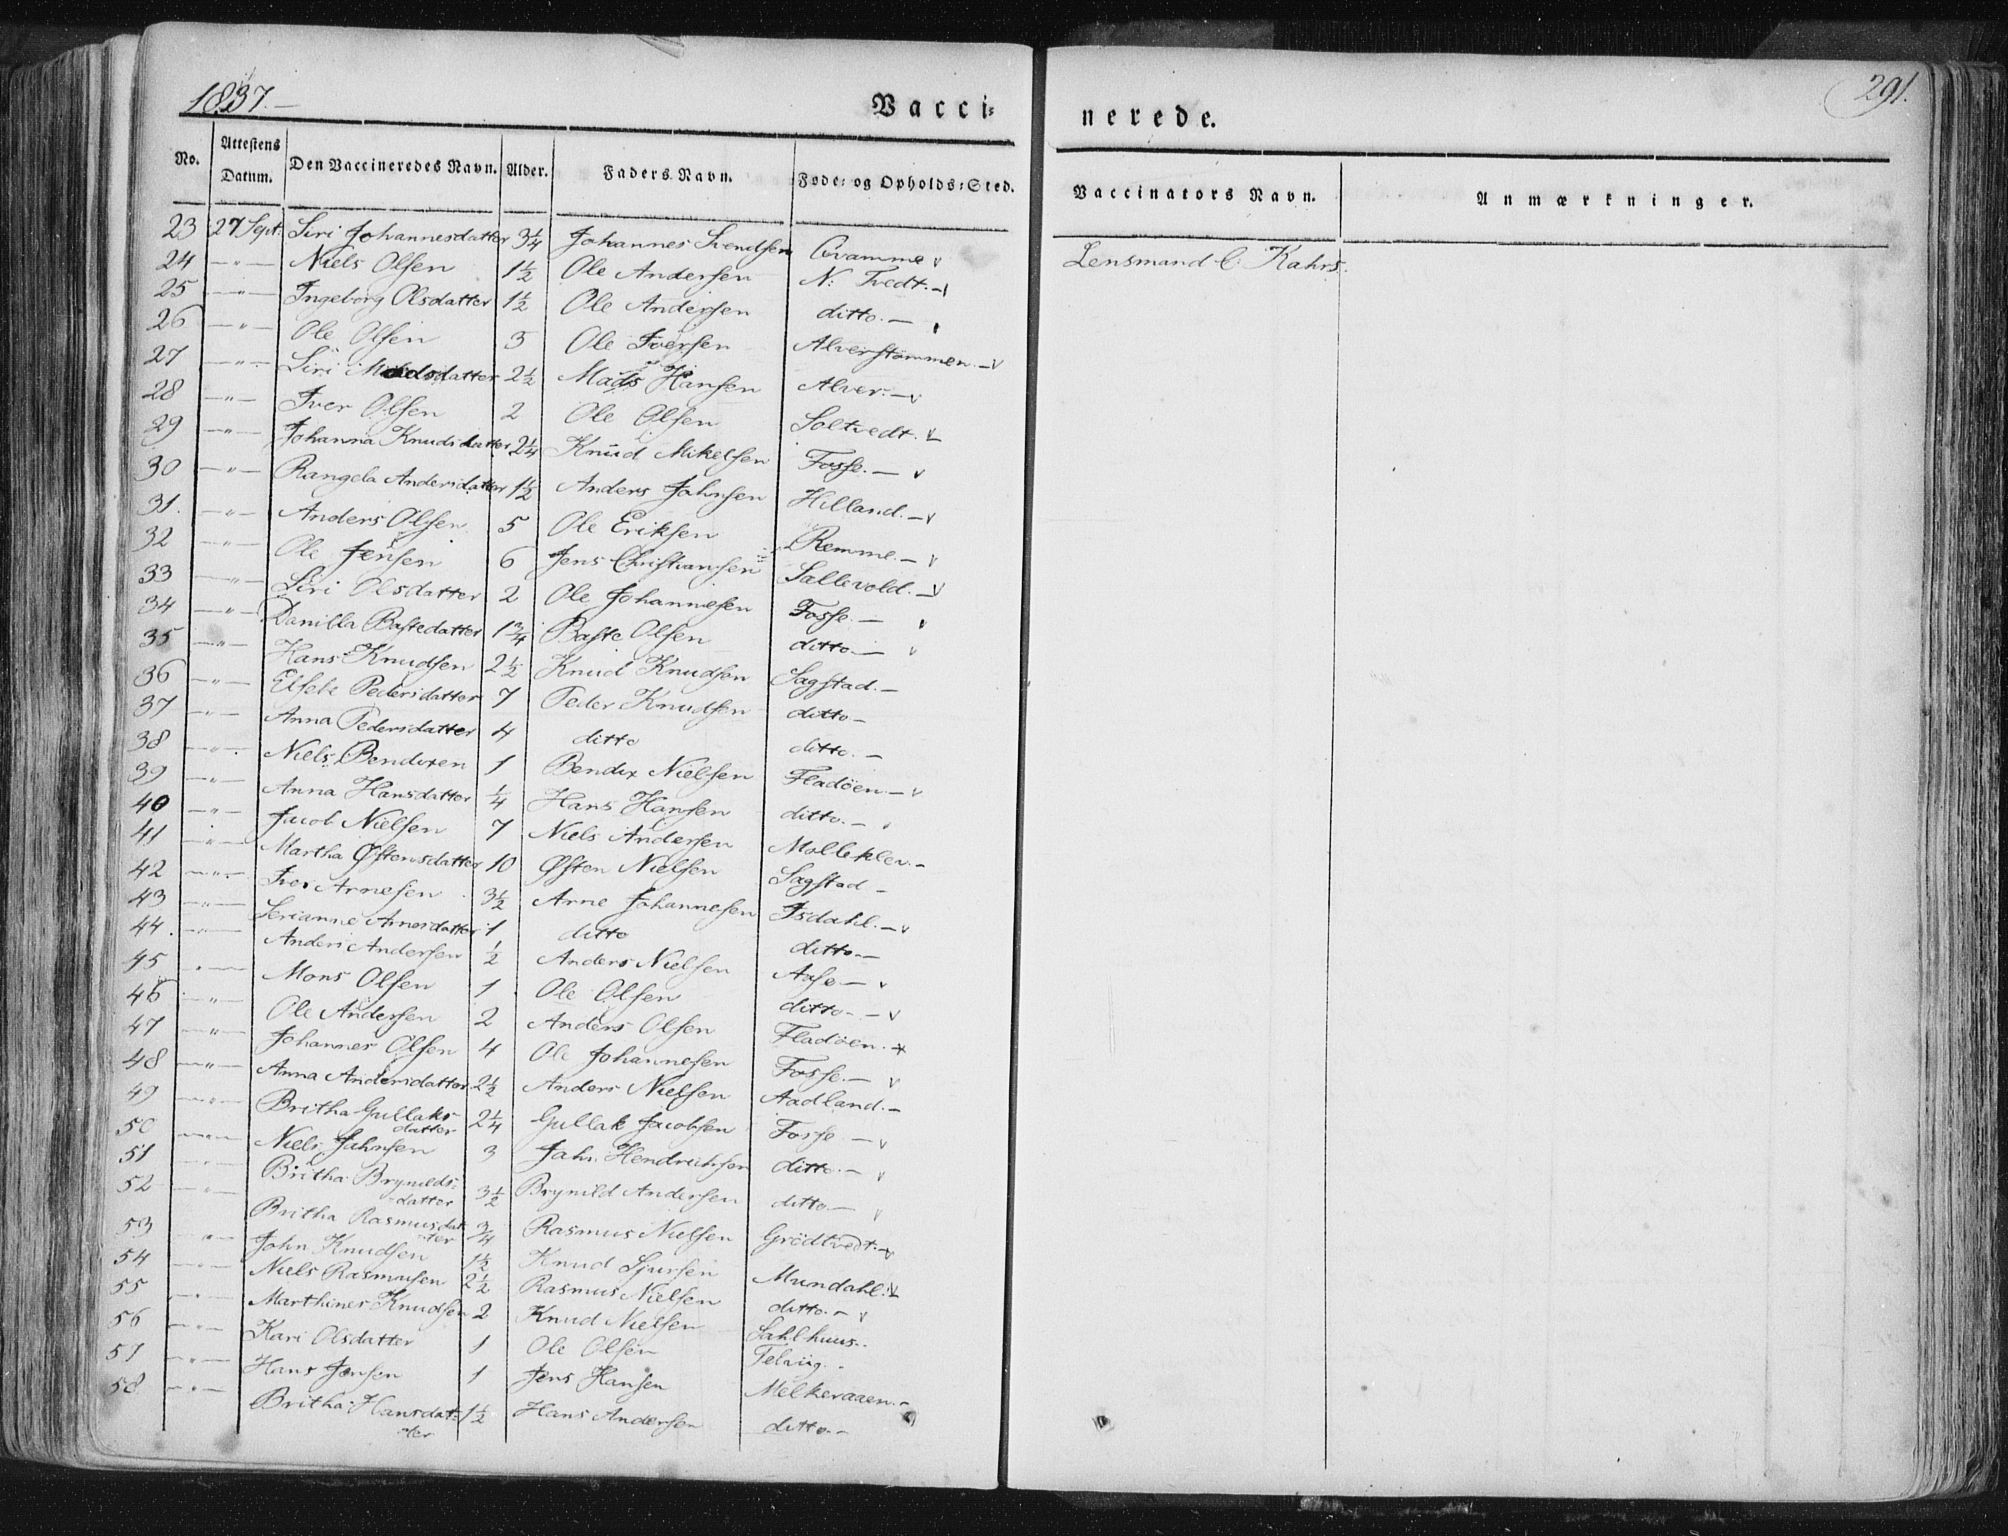 1837.
Vacci=
nerede.
291.
No. Attestens Datum. Den Vaccineredes Navn. Alder. Faders Navn. Føde= og Opholds=Sted. Vaccinators Navn. Anmærkninger.
23 27 Sept. Siri Johannesdatter 3/4 Johannes Svendsen Qvamme Lensmand C. Kahrs.
24 —"— Niels Olsen 1 1/2 Ole Andersen N: Tvedt. —
25 —"— Ingeborg Olsdatter 1 1/2 Ole Andersen ditto. —
26 —"— Ole Olsen 3 Ole Iversen Alverstømmen. —
27 —"— Siri Madsdatter 2 1/2 Mads Hansen Alver. —
28 —"— Iver Olsen 2 Ole Olsen Soltvedt.
29 —"— Johanna Knudsdatter 2 1/4 Knud Mikelsen Fosse. —
30 —"— Rangela Andersdatter 1 1/2 Anders Jahnsen Hilland. —
31. —"— Anders Olsen 5 Ole Eriksen Remme. —
32 —"— Ole Jensen 6 Jens Christiansen Sallevold. —
33 —"— Siri Olsdatter 2 Ole Johannesen Fosse. —
34 —"— Danilla Bastedatter 1 3/4 Baste Olsen ditto. —
35 —"— Hans Knudsen 2 1/2 Knud Knudsen Sagstad. —
36 —"— Elsebe Pedersdatter 7 Peder Knudsen ditto —
37 —"— Anna Pedersdatter 4 ditto ditto. —
38 —"— Niels Bendixen 1 Bendix Nielsen Fladøen. —
39 —"— Anna Hansdatter 1/4 Hans Hansen ditto. —
40 —"— Jacob Nielsen 7 Niels Andersen Molleklev. —
41 —"— Martha Østensdatter 10 Østen Nielsen Sagstad —
42 —"— Iver Arnesen 3 1/2 Arne Johannesen Isdahl. —
43 —"— Serianne Arnesdatter 1 ditto ditto. —
44. —"— Anders Andersen 1/2 Anders Nielsen Aase —
45 —"— Mons Olsen 1 Ole Olsen ditto. —
46 —"— Ole Andersen 2 Anders Olsen Fladøen. —
47 —"— Johannes Olsen 4 Ole Johannesen Fosse. —
48 —"— Anna Andersdatter 2 1/2 Anders Nielsen Aadland. —
49 —"— Britha Gullaks-
datter 2 1/4 Gullak Jacobsen Fosse —
50 —"— Niels Jahnsen 3 Jahn Hendrichsen ditto. —
51 —"— Britha Brynilds-
datter 3 1/2 Brynild Andersen ditto —
52 —"— Britha Rasmusdat
ter 3/4 Rasmus Nielsen Grødtvedt. —
53 —"— John Knudsen 1 1/2 Knud Sjursen Mundahl.
54 —"— Niels Rasmusen 2 1/2 Rasmus Nielsen ditto. —
55 —"— Marthines Knudsen 2 Knud Nielsen Sahlhuus.
56 —"— Kari Olsdatter 1 Ole Olsen Telviig.
57 —"— Hans Jensen 1 Jens Hansen Melkeraaen. —
58 —"— Britha Hansdat-
ter 1 1/2 Hans Andersen ditto. —